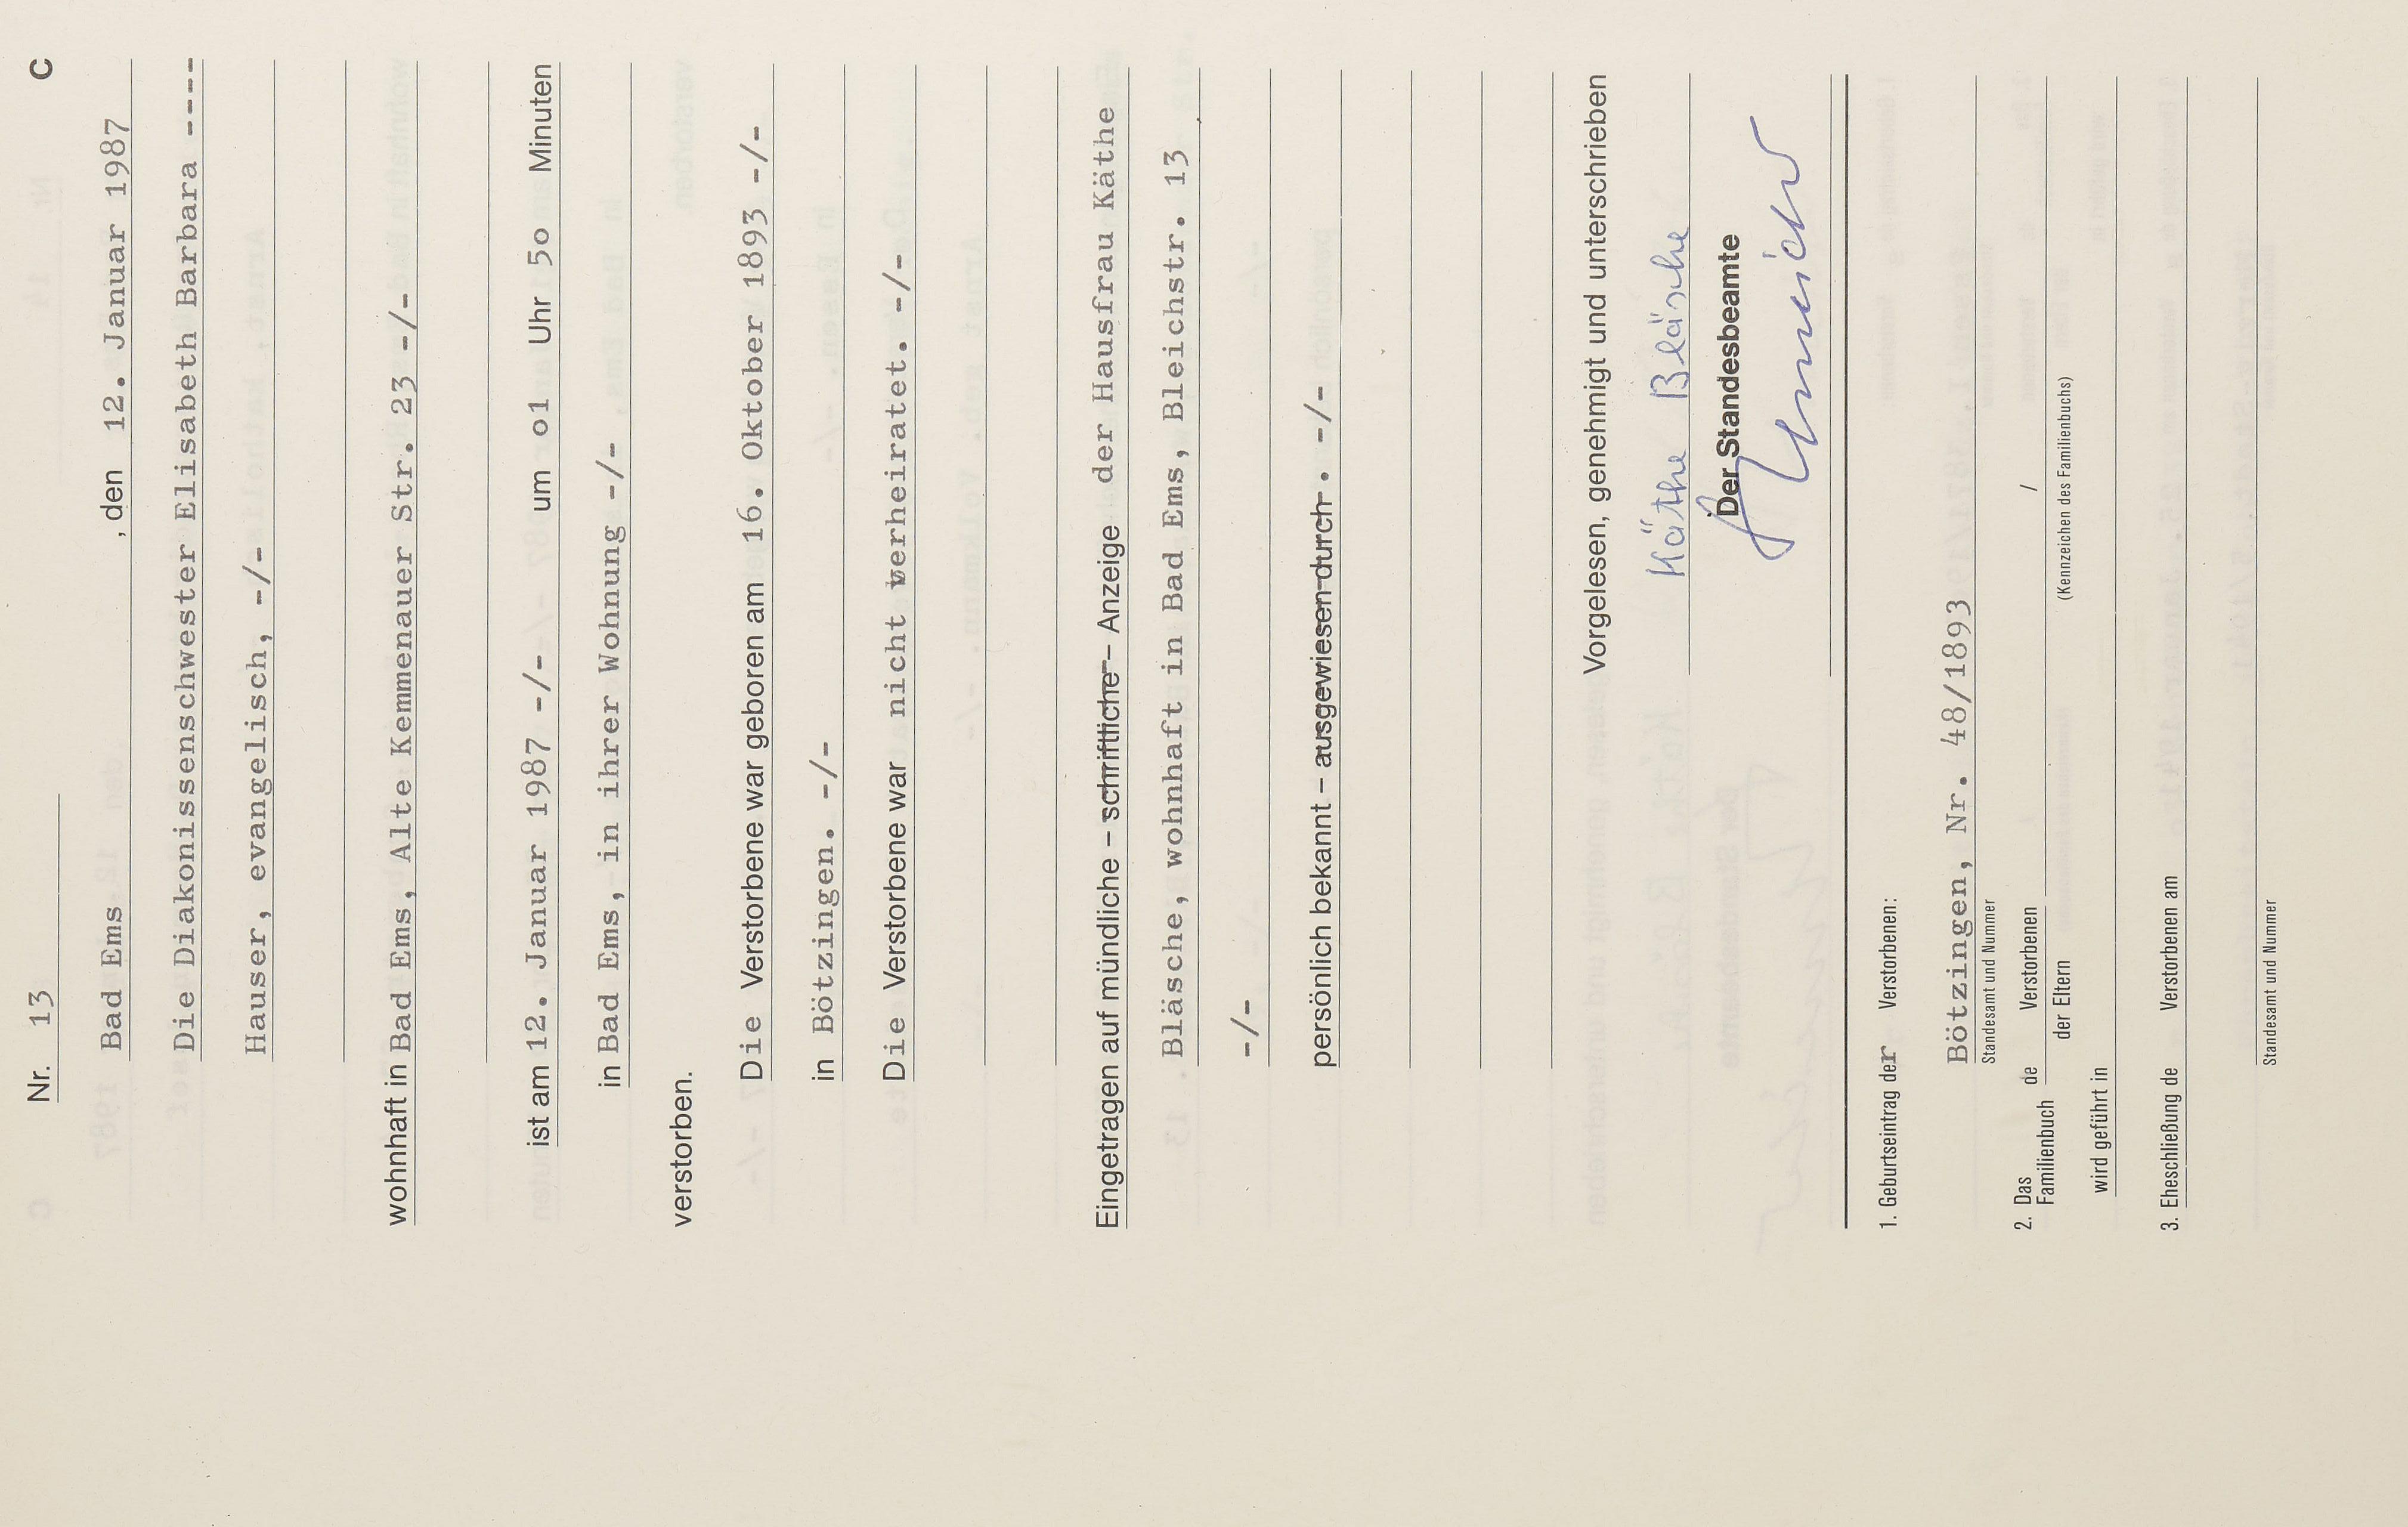 Nr. 13 C
Bad Ems , den 12. Januar 1987
Die Diakonissenschwester Elisabeth Barbara ----
Hauser, evangelisch, -/-
wohnhaft in Bad Ems, Alte Kemmenauer Str. 23 -/-
ist am 12. Januar 1987 -/- um o1 Uhr 5o Minuten
in Bad Ems, in ihrer Wohnung -/-
verstorben.
Die Verstorbene war geboren am 16. Oktober 1893 -/-
in Bötzingen. -/-
Die Verstorbene war nicht verheiratet. -/-
Eingetragen auf mündliche – schriftliche – Anzeige der Hausfrau Käthe
Bläsche, wohnhaft in Bad Ems, Bleichstr. 13
-/-
persönlich bekannt – ausgewiesen durch . -/-
Vorgelesen, genehmigt und unterschrieben
Käthe Bläsche
Der Standesbeamte
1. Geburtseintrag der Verstorbenen:
Bötzingen, Nr. 48/1893
Standesamt und Nummer
2. Das Familienbuch de Verstorbenen /
der Eltern (Kennzeichen des Familienbuchs)
wird geführt in
3. Eheschließung de Verstorbenen am
Standesamt und Nummer